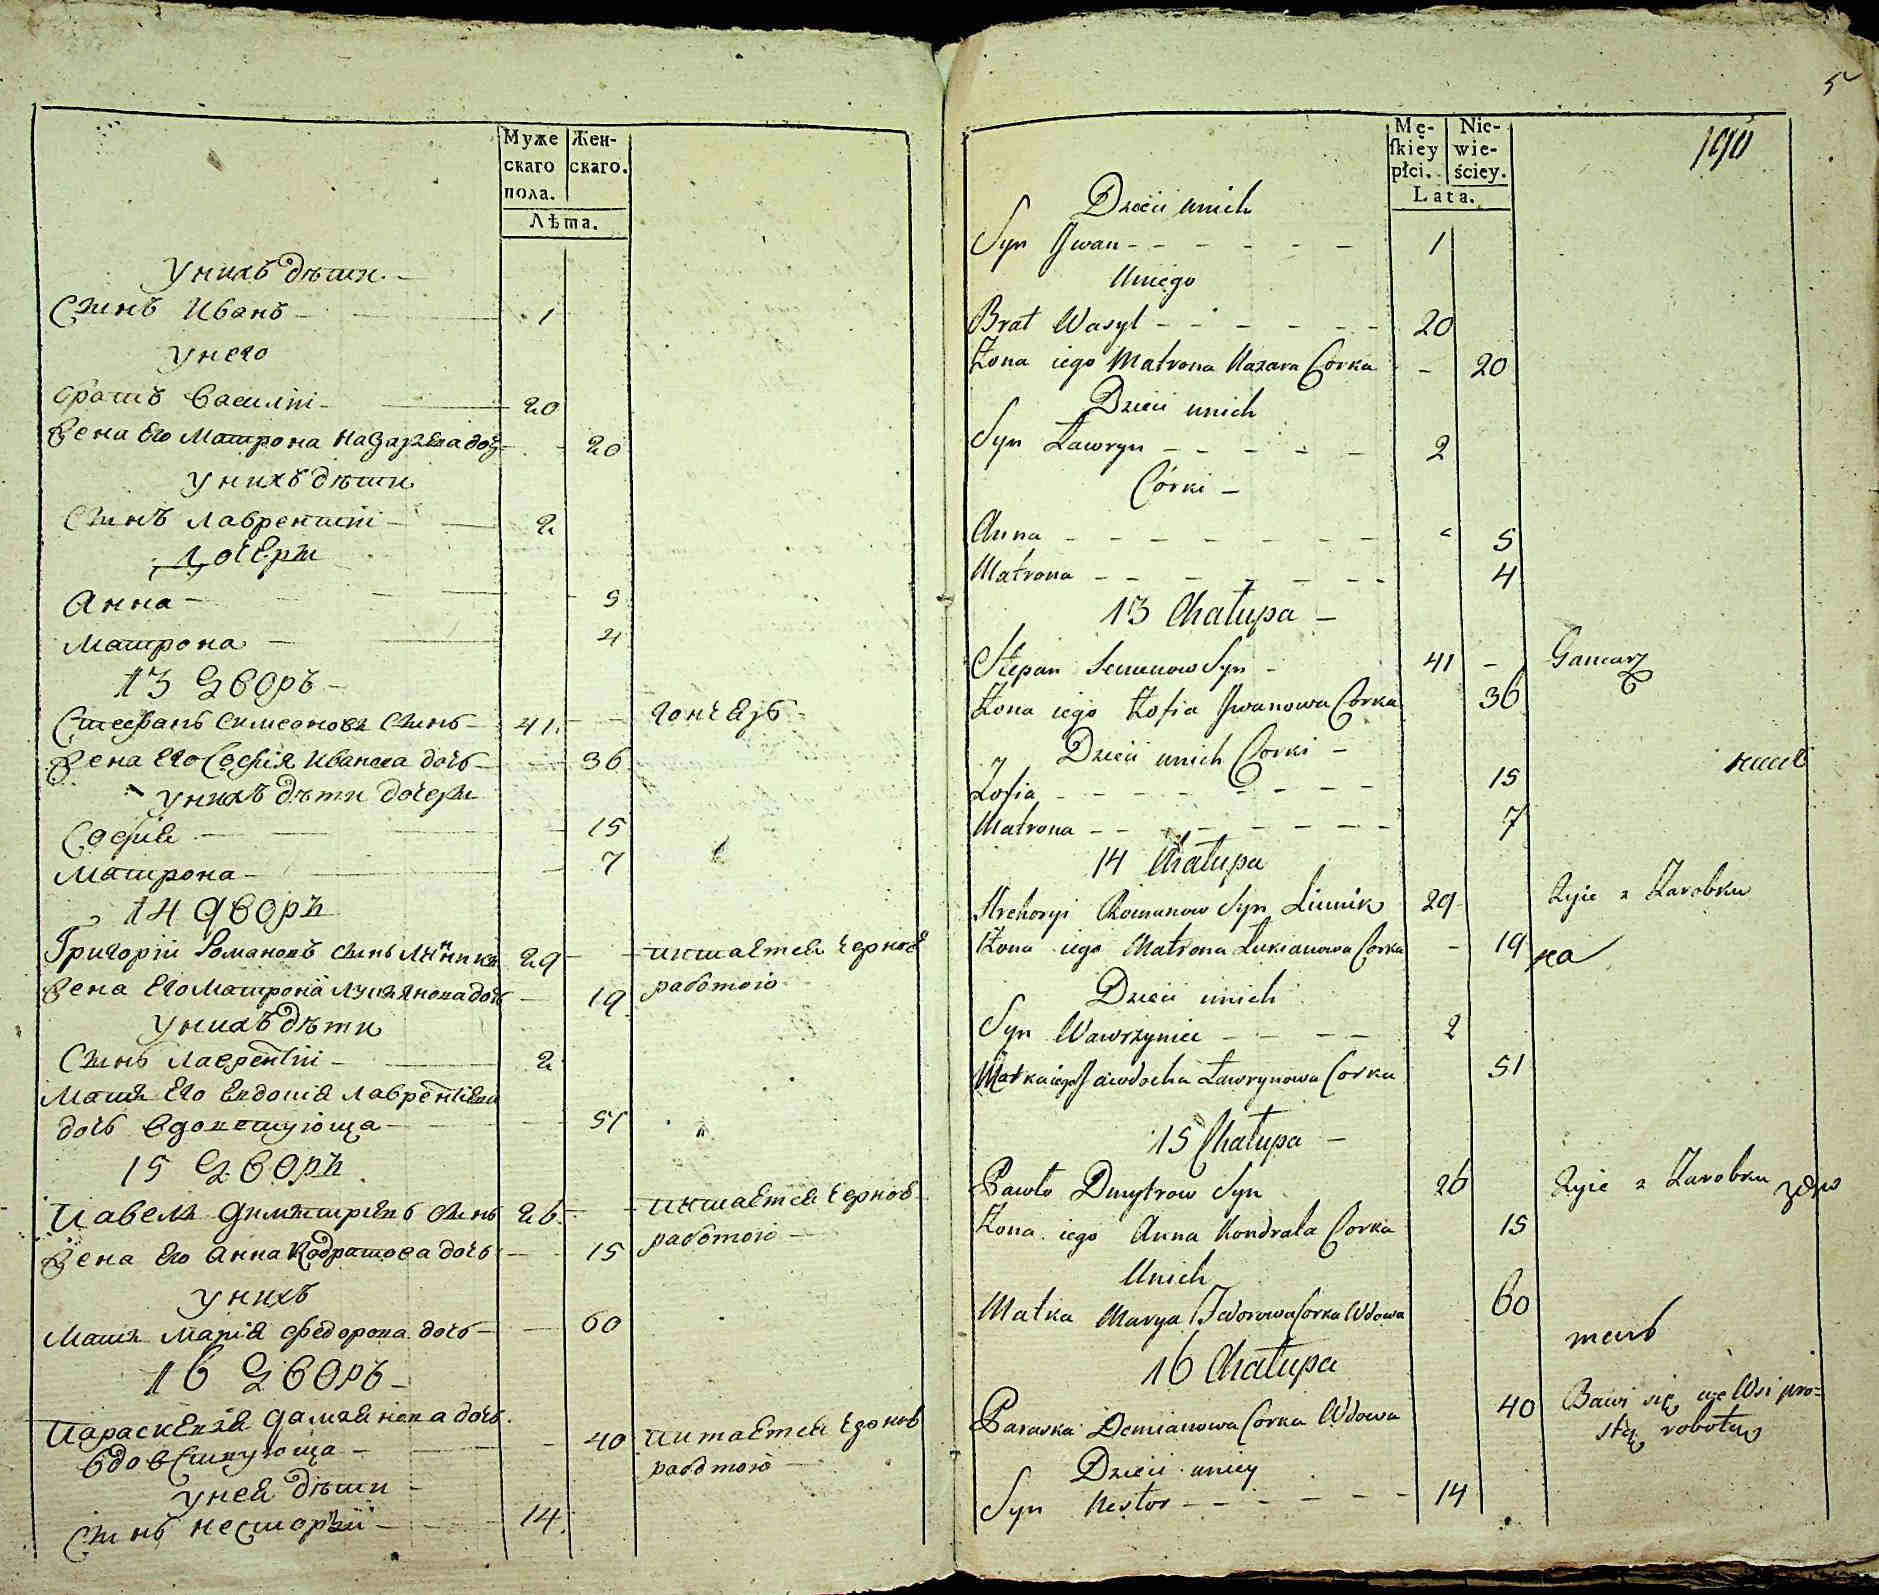 Муже
скаго
пола.
Жен-
скаго.
Лѣта.
У нихъ дѣти
Сынъ Иванъ 1
У него
братъ Василій 20
Жена Его Матрона Назарева дочь 20
У нихъ дѣти
Сынъ Лаврентій 2
Дочери
Анна 5
Матрона 4
13 Дворъ
Стефанъ Симеоновъ Сынъ 41 гончаръ
Жена Его Софія Иванова дочь 36
У нихъ дѣти дочери
Софія 15
Матрона 7
14 дворъ
Григорій Романовъ сынъ Линникъ 29 питается черною
Жена Его Матрона Лукіянова дочь 19 работою
У нихъ дѣти
Сынъ Лаврентій 2
Матъ Его Евдокія Лаврентіева
дочь вдовствующа 51
15 Дворъ
Павелъ Димитріевъ сынъ 26 питается черною
Жена Его Анна Кодратова дочь 15 работою
У нихъ
Матъ Марія Федорова дочь 60
16 Дворъ
Параскевія Даміянова дочь
вдовствующа 40 питается черною
работою
У ней дѣти
Сынъ Несторій 14
5
Mę-
skiey
płci.
Nie-
wie-
ściey.
Lata.
190
Dzieci unich
Syn Jwan 1
Uniego
Brat Wasyl 20
Żona iego Matrona Nazara Corka 20
Dzieci unich
Syn Ławryn 2
Córki
Anna 5
Matrona 4
13 Chałupa
Stepan Semenow Syn 41 Gancarz
Żona iego Zofia Jwanowa Corka 36
Dzieci unich Corki
Zofia 15
Matrona 7
14 Chałupa
Hrehoryi Romanow Syn Linnik 29 Żyie z Zarobku
Żona iego Matrona Łukianowa Corka 19 на
Dzieci unich
Syn Wawrzyniec 2
Matka iego Jawdocha Ławrynowa Corka 51
15 Chałupa
Pawło Dmytrow Syn 26 Żyie z Zarobku
Żona iego Anna Kondrata Corka 15
Unich
Matka Marya Fedorowa Corka Wdowa 60
тель
16 Chałupa
Paraska Demianowa Corka Wdowa 40 Bawi się we Wsi pro-
stą robotą
Dzieci uniey
Syn Nestor 14